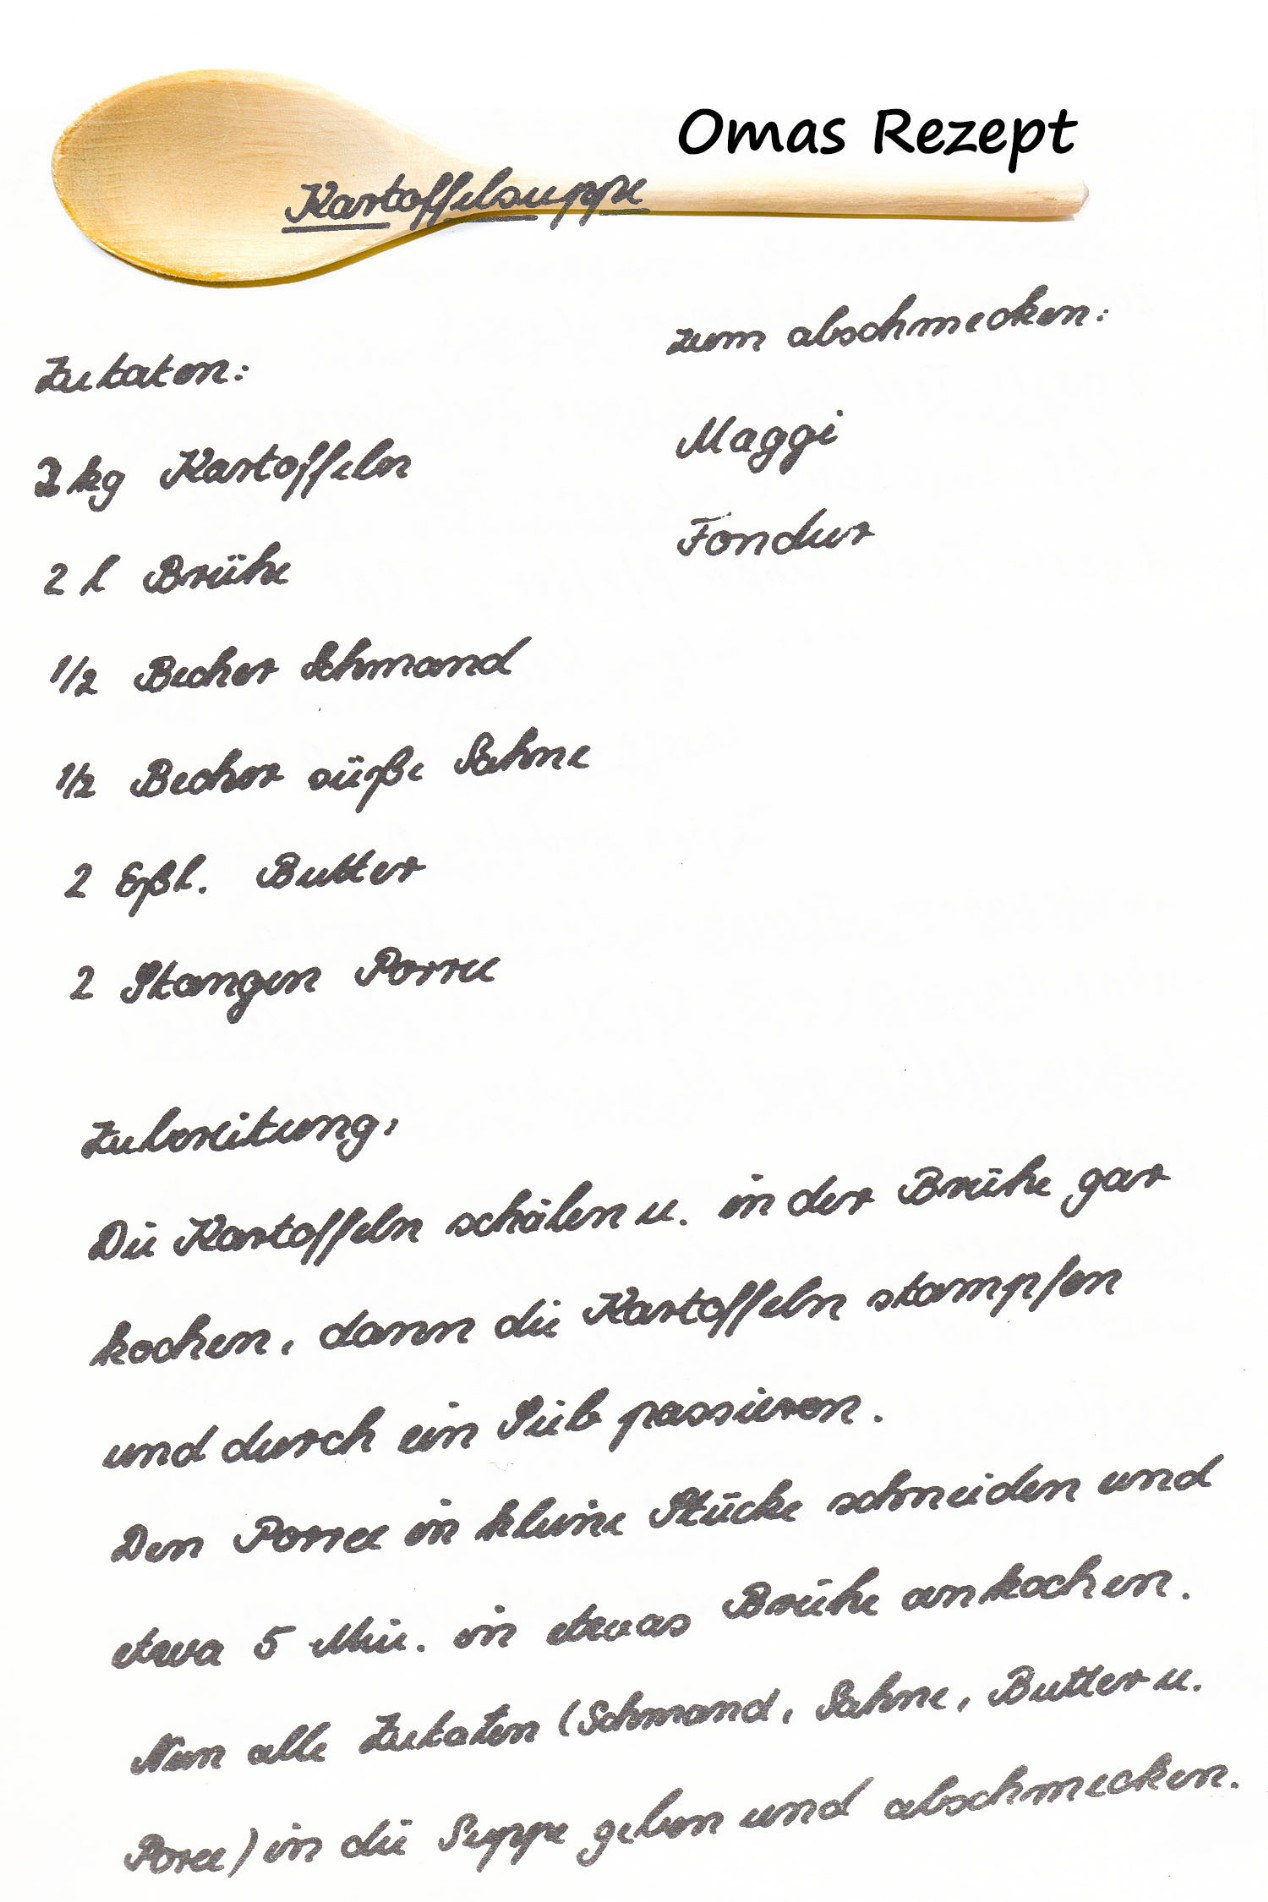 Omas Rezept
Kartoffelsuppe
Zutaten:
2 kg Kartoffeln
2 l Brühe
1/2 Becher Schmand
1/2 Becher süße Sahne
2 Eßl. Butter
2 Stangen Porree
zum abschmecken:
Maggi
Fondur
Zubereitung:
Die Kartoffeln schälen u. in der Brühe gar
kochen, dann die Kartoffeln stampfen
und durch ein Sieb passieren.
Den Porree in kleine Stücke schneiden und
etwa 5 Min. in etwas Brühe ankochen.
Nun alle Zutaten (Schmand, Sahne, Butter u.
Poree) in die Suppe geben und abschmecken.